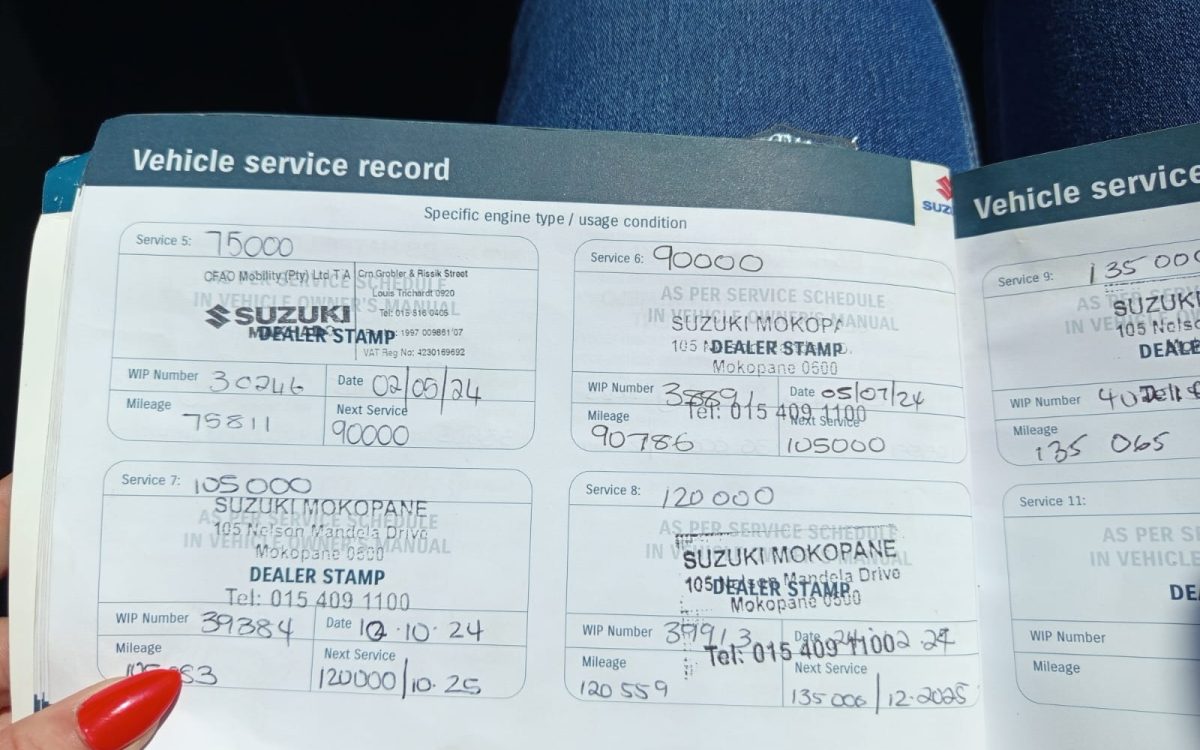 Vehicle service record
SUZ
Specific engine type / usage condition
Service 5: 75000
AS PER SERVICE SCHEDULE
IN VEHICLE OWNER'S MANUAL
CFAO Mobility (Pty) Ltd T A
Crn Grobler & Rissik Street
Louis Trichardt 0920
SUZUKI
Tel: 015 516 0405
DEALER STAMP
VAT Reg No: 4230169692
WIP Number 30246
Date 02/05/24
Mileage 75811
Next Service 90000
Service 6: 90000
AS PER SERVICE SCHEDULE
IN VEHICLE OWNER'S MANUAL
SUZUKI MOKOPA
105
DEALER STAMP
Mokopane 0600
WIP Number 38891
Date 05/07/24
Tel: 015 409 1100
Mileage 90786
Next Service 105000
Service 7: 105000
SUZUKI MOKOPANE
AS PER SERVICE SCHEDULE
105 Nelson Mandela Drive
IN VEHICLE OWNER'S MANUAL
Mokopane 0600
DEALER STAMP
Tel: 015 409 1100
WIP Number 39384
Date 10.24
Mileage
Next Service 120000/10.25
Service 8: 120000
AS PER SERVICE SCHEDULE
IN VEHICLE OWNER'S MANUAL
SUZUKI MOKOPANE
105 Nelson Mandela Drive
DEALER STAMP
Mokopane 0600
WIP Number
Date
Tel: 015 409 1100
Mileage 120 559
Next Service 135000/12.2025
Vehicle service
Service 9: 135 000
AS
SUZUKI
IN VEHICLE
105 Nelso
DEALE
WIP Number
Mileage 135 065
Service 11:
AS PER SE
IN VEHICLE
DE
WIP Number
Mileage